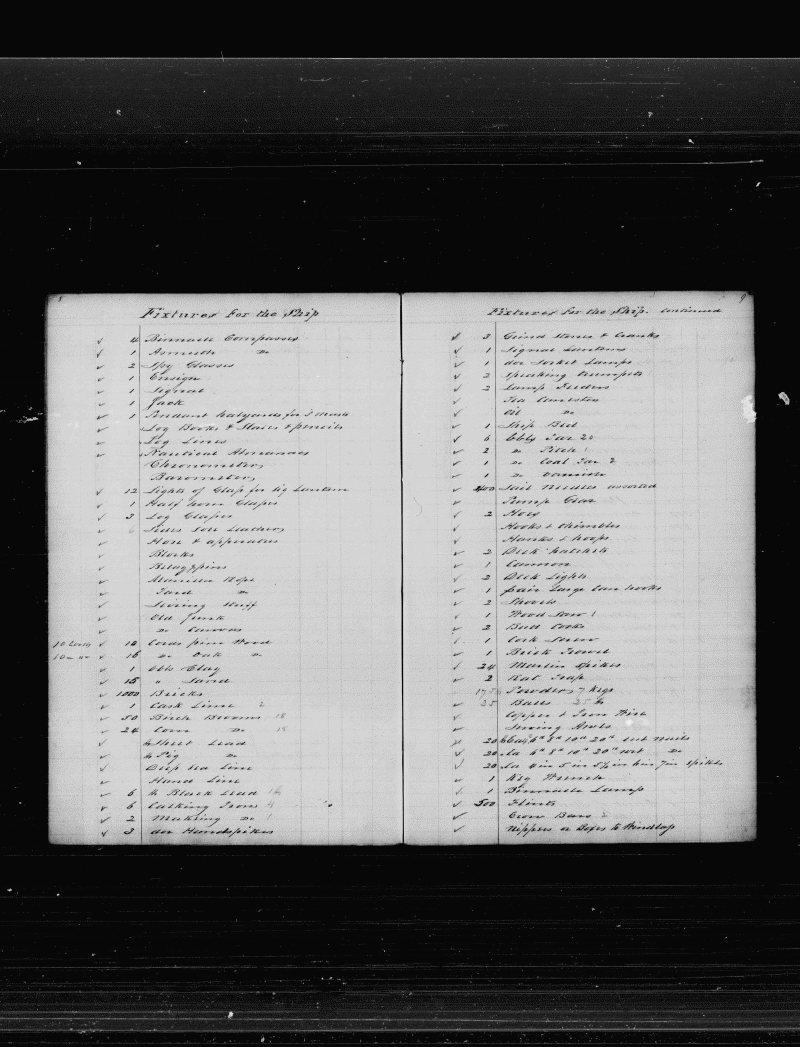 8
Fixtures for the Ship
4 Binnacle Compasses
1 Asmuth Do
2 Spy Glasses
1 Ensign
1 Signal
1 Jack
1 Pendant halyards for 3 Masts
Log Books & Slates & pencils
Log Lines
Nautical Almanacs
Chronometers
Barometers
12 Lights of Glass for big Lantern
1 Half hour Glasses
3 Log Glasses
6 Sides Sole Leathers
Hose & apparatus
Blocks
Belayg pins
Manilla Rope
Tard Do
Serving Stuff
Old Junk
Do Canvas
10 Cords pine Wood
16 Do Oak Do
1 Bbls Clay
15 " Sand
1000 Bricks
1 Cask Lime 2
50 Birch Brooms 18
24 Corn Do 18
Sheet Lead
Pig Do
Deep Sea Line
Hand Line
6 lb Black Lead
6 Calking Irons 4
2 Making Do 1
3 doz Handspikes
9
Fixtures for the Ship. Continued
3 Grind Stones & Cranks
1 Signal Lanterns
1 doz Socket Lamps
2 Speaking Trumpets
2 Lamp Feeders
Tea Canisters
Oil Do
1 Ship Bell
6 bbls Tar 20
2 Do Pitch 1
1 Do Coal Tar 2
1 Do Varnish
400 Sail Needles assorted
Pump Gear
2 Hoes
Hooks & thimbles
Hanks & hoops
2 Deck hatchets
1 Cannon
2 Deck Lights
1 pair Large Can hooks
2 Shovels
1 Wood Saw 1
2 Bad Cocks
1 Cork Screw
1 Brick Trowel
24 Marlin Spikes
2 Rat Trap
Powders 7 kegs
25 Balls 25 lb
Copper & Iron Wire
Sewing Awls
20 6d 8d 10d 20d cut nails
20 6d 8d 10d 20d wrt Do
20 4 in 5 in 5½ in 6 in 7 in Spikes
1 Key Wrench
1 Binnacle Lamp
500 Flints
Crow Bars 2
Nippers or Dogs to Windlass